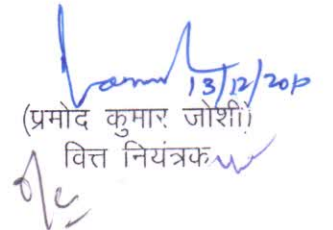 13/12/20
(प्रमोद कुमार जोशी)
वित्त नियंत्रक